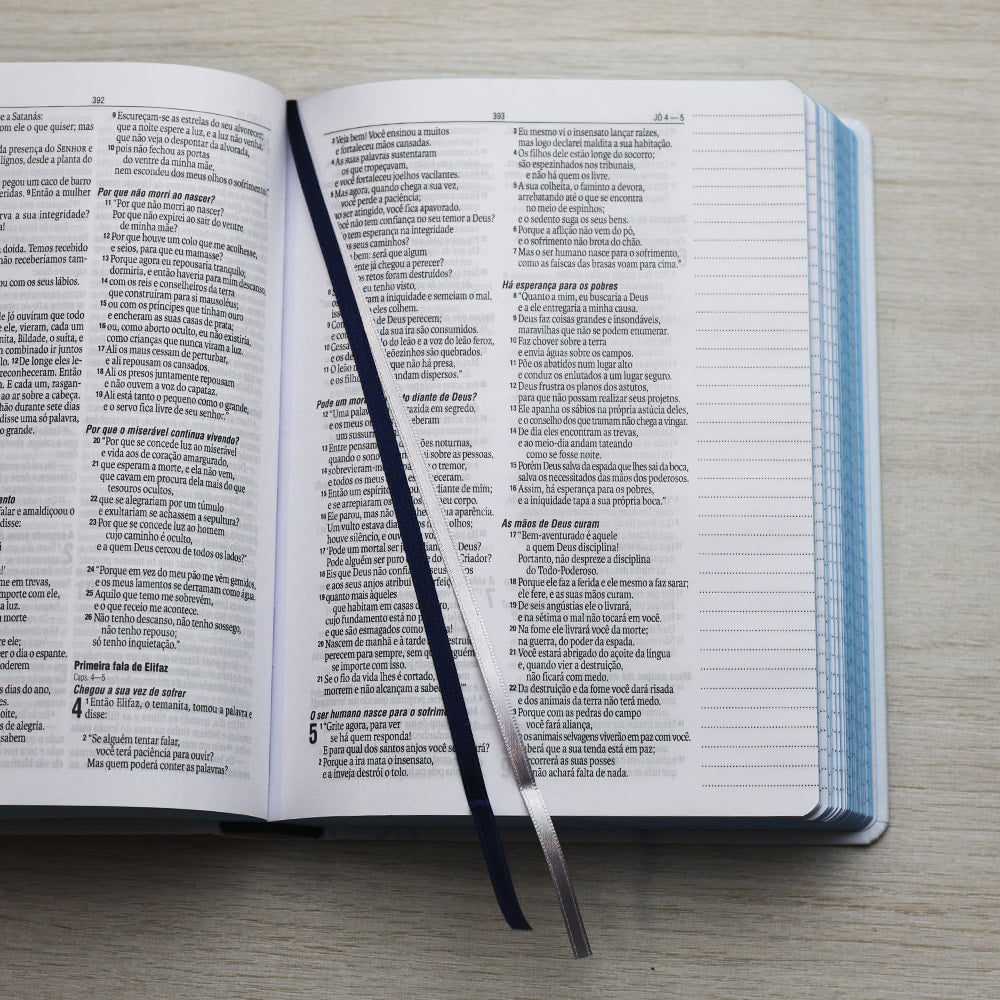 392
e a Satanás:
om ele o que quiser; mas
da presença do SENHOR e
lignos, desde a planta do
pegou um caco de barro
eridas. 9 Então a mulher
rva a sua integridade?
doida. Temos recebido
não receberíamos tam-
ou com os seus lábios.
de Jó ouviram que todo
e ele, vieram, cada um
Bildade, o suíta, e
combinado ir juntos
lo. 12 De longe eles le-
reconheceram. Então
E cada um, rasgan-
ao ar sobre a cabeça.
hão durante sete dias
disse uma só palavra,
o grande.
falar e amaldiçoou o
disse:
me em trevas,
importe com ele,
a luz.
morte
re ele;
er o dia o espante.
oderem
s dias do ano,
s de alegria.
sabem
9 Escureçam-se as estrelas do seu alvorecer;
que a noite espere a luz, e a luz não venha;
que não veja o despontar da alvorada,
10 pois não fechou as portas
do ventre da minha mãe,
nem escondeu dos meus olhos o sofrimento."
Por que não morri ao nascer?
11 "Por que não morri ao nascer?
Por que não expirei ao sair do ventre
de minha mãe?
12 Por que houve um colo que me acolhesse,
e seios, para que eu mamasse?
13 Porque agora eu repousaria tranquilo;
dormiria, e então haveria para mim descanso,
14 com os reis e conselheiros da terra
que construíram para si mausoléus;
15 ou com os príncipes que tinham ouro
e encheram as suas casas de prata;
16 ou, como aborto oculto, eu não existiria,
como crianças que nunca viram a luz.
17 Ali os maus cessam de perturbar,
e ali repousam os cansados.
18 Ali os presos juntamente repousam
e não ouvem a voz do capataz.
19 Ali está tanto o pequeno como o grande,
e o servo fica livre de seu senhor."
Por que o miserável continua vivendo?
20 "Por que se concede luz ao miserável
e vida aos de coração amargurado,
21 que esperam a morte, e ela não vem,
que cavam em procura dela mais do que
tesouros ocultos,
22 que se alegrariam por um túmulo
e exultariam se achassem a sepultura?
23 Por que se concede luz ao homem
cujo caminho é oculto,
e a quem Deus cercou de todos os lados?"
24 "Porque em vez do meu pão me vêm gemidos,
e os meus lamentos se derramam como água.
25 Aquilo que temo me sobrevém,
e o que receio me acontece.
26 Não tenho descanso, não tenho sossego,
não tenho repouso;
só tenho inquietação."
Primeira fala de Elifaz
Caps. 4—5
Chegou a sua vez de sofrer
4 1 Então Elifaz, o temanita, tomou a palavra e
disse:
2 "Se alguém tentar falar,
você terá paciência para ouvir?
Mas quem poderá conter as palavras?
393
JÓ 4 — 5
3 Veja bem! Você ensinou a muitos
e fortaleceu mãos cansadas.
4 As suas palavras sustentaram
os que tropeçavam,
e você fortaleceu joelhos vacilantes.
5 Mas agora, quando chega a sua vez,
você perde a paciência;
ao ser atingido, você fica apavorado.
Você não tem confiança no seu temor a Deus?
o tem esperança na integridade
s seus caminhos?
bem: será que algum
ente já chegou a perecer?
retos foram destruídos?
eu tenho visto,
ram a iniquidade e semeiam o mal,
eles colhem.
9 Com de Deus perecem;
da sua ira são consumidos.
10 Cessa do leão e a voz do leão feroz,
e os de leõezinhos são quebrados.
11 O leão que não há presa,
e os filho andam dispersos."
Pode um mor diante de Deus?
12 "Uma palav razida em segredo,
e os meus o eberam
um sussurr
13 Entre pensam ões noturnas,
quando o sono ei sobre as pessoas,
14 sobrevieram-m o tremor,
e todos os meus es
15 Então um espírito diante de mim;
e se arrepiaram os eu corpo.
16 Ele parou, mas não a aparência.
Um vulto estava dia olhos;
houve silêncio, e ouv
17 'Pode um mortal ser j Deus?
Pode alguém ser puro do Criador?
18 Eis que Deus não confia seus servos
e aos seus anjos atribui rfeiç
19 quanto mais àqueles
que habitam em casas d ro,
cujo fundamento está no p
e que são esmagados como a!
20 Nascem de manhã e à tarde estruí
perecem para sempre, sem q nguém
se importe com isso.
21 Se o fio da vida lhes é cortado,
morrem e não alcançam a sabe
O ser humano nasce para o sofrime
5 1 "Grite agora, para ver
se há quem responda!
E para qual dos santos anjos você se ará?
2 Porque a ira mata o insensato,
e a inveja destrói o tolo.
3 Eu mesmo vi o insensato lançar raízes,
mas logo declarei maldita a sua habitação.
4 Os filhos dele estão longe do socorro;
são espezinhados nos tribunais,
e não há quem os livre.
5 A sua colheita, o faminto a devora,
arrebatando até o que se encontra
no meio de espinhos;
e o sedento suga os seus bens.
6 Porque a aflição não vem do pó,
e o sofrimento não brota do chão.
7 Mas o ser humano nasce para o sofrimento,
como as faíscas das brasas voam para cima."
Há esperança para os pobres
8 "Quanto a mim, eu buscaria a Deus
e a ele entregaria a minha causa.
9 Deus faz coisas grandes e insondáveis,
maravilhas que não se podem enumerar.
10 Faz chover sobre a terra
e envia águas sobre os campos.
11 Põe os abatidos num lugar alto
e conduz os enlutados a um lugar seguro.
12 Deus frustra os planos dos astutos,
para que não possam realizar seus projetos.
13 Ele apanha os sábios na própria astúcia deles,
e o conselho dos que tramam não chega a vingar.
14 De dia eles encontram as trevas,
e ao meio-dia andam tateando
como se fosse noite.
15 Porém Deus salva da espada que lhes sai da boca,
salva os necessitados das mãos dos poderosos.
16 Assim, há esperança para os pobres,
e a iniquidade tapa a sua própria boca."
As mãos de Deus curam
17 "Bem-aventurado é aquele
a quem Deus disciplina!
Portanto, não despreze a disciplina
do Todo-Poderoso.
18 Porque ele faz a ferida e ele mesmo a faz sarar;
ele fere, e as suas mãos curam.
19 De seis angústias ele o livrará,
e na sétima o mal não tocará em você.
20 Na fome ele livrará você da morte;
na guerra, do poder da espada.
21 Você estará abrigado do açoite da língua
e, quando vier a destruição,
não ficará com medo.
22 Da destruição e da fome você dará risada
e dos animais da terra não terá medo.
Porque com as pedras do campo
você fará aliança,
os animais selvagens viverão em paz com você.
berá que a sua tenda está em paz;
correrá as suas posses
não achará falta de nada.